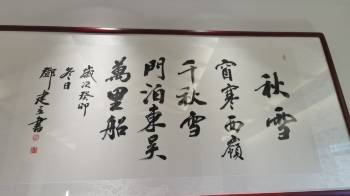 秋雪
窗寒西嶺
千秋雪
門泊東吴
萬里船
歲次癸卯
冬日
鄧建立書